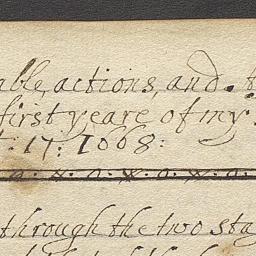 able, actions, and.
first yeare of my
: 17: 1668:
through the two sta